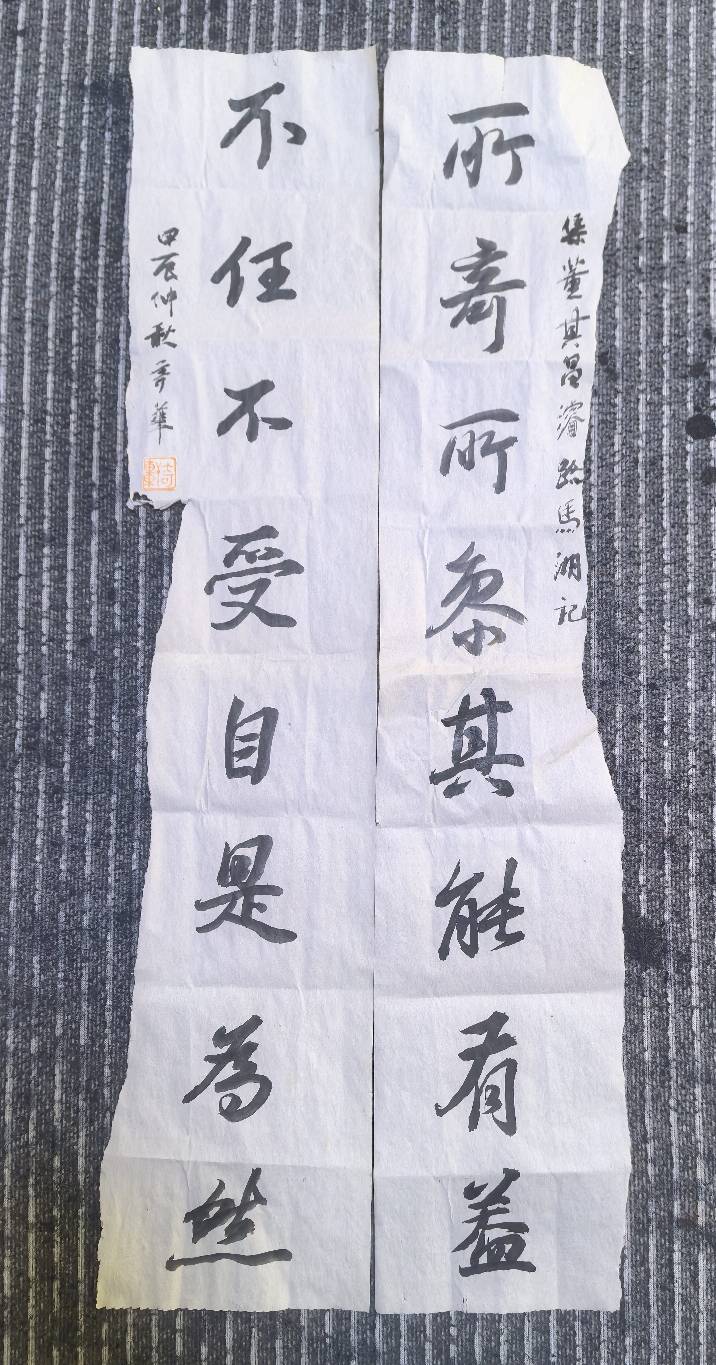 集董其昌濬路馬湖記
所奇所叅其能有益
不任不受自是為然
甲辰仲秋 華